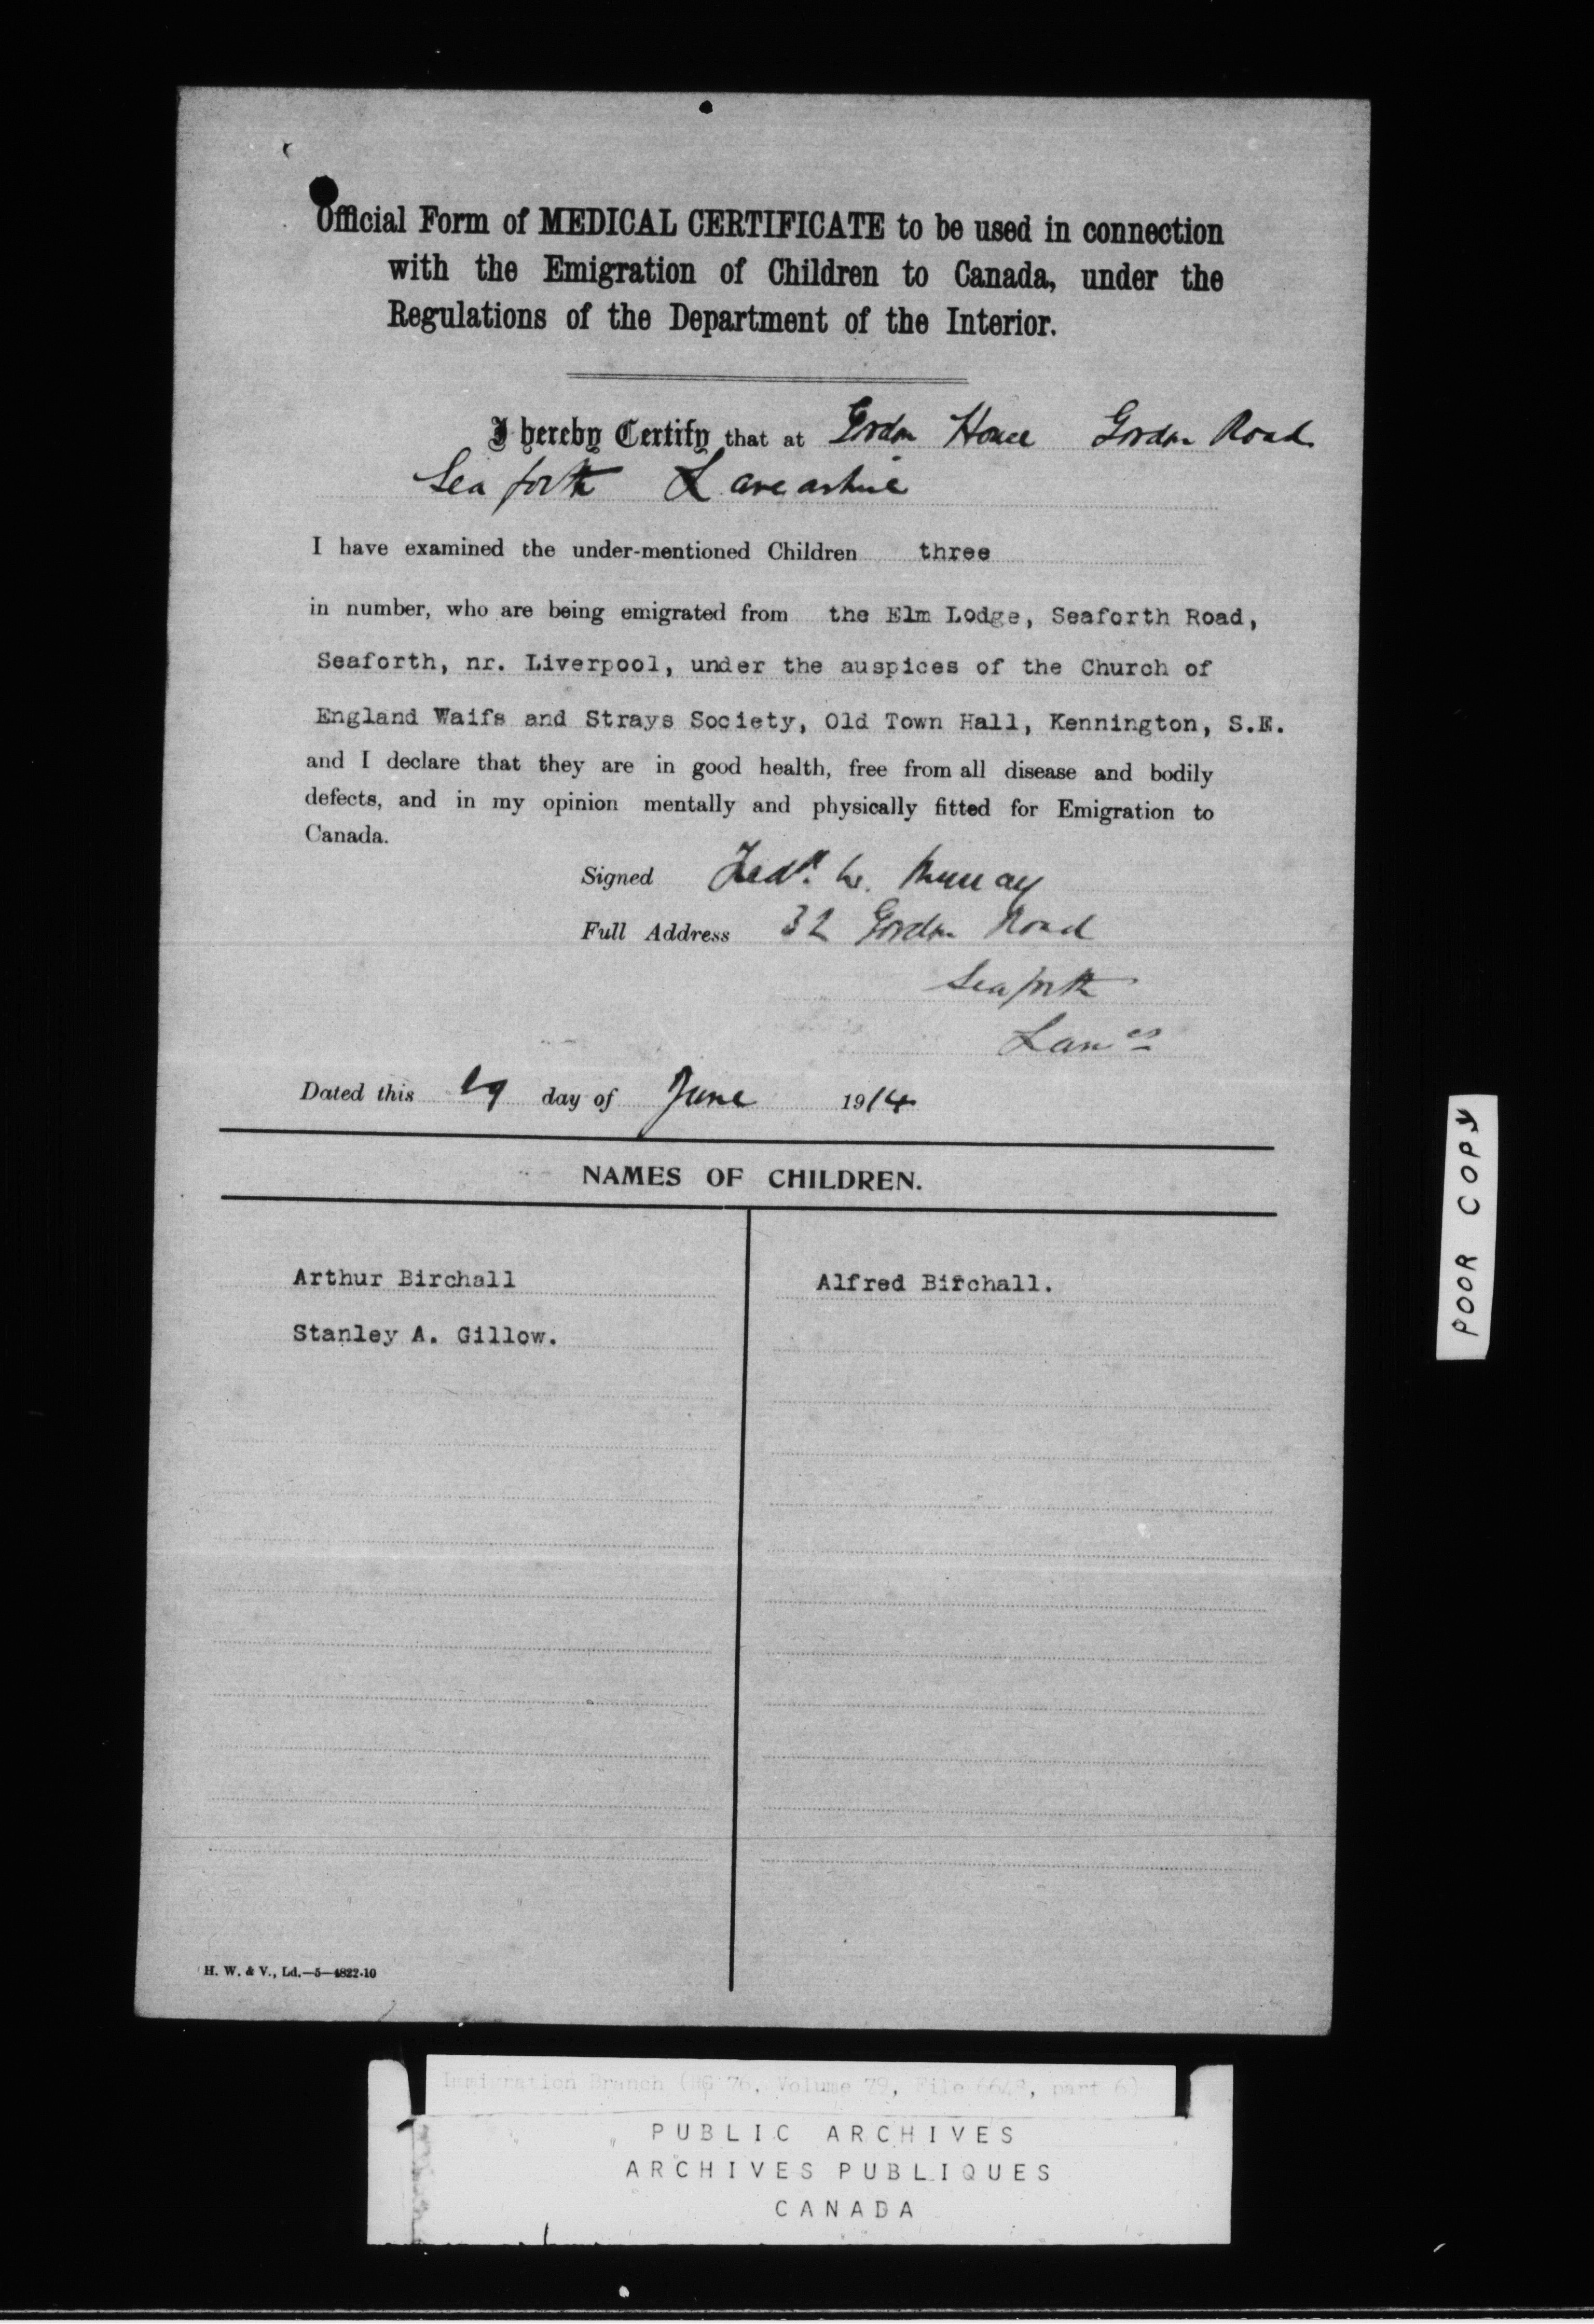 Official Form of MEDICAL CERTIFICATE to be used in connection
with the Emigration of Children to Canada, under the
Regulations of the Department of the Interior.
I hereby Certify that at Gordon House Gordon Road
Seaforth Lancashire
I have examined the under-mentioned Children three
in number, who are being emigrated from the Elm Lodge, Seaforth Road,
Seaforth, nr. Liverpool, under the auspices of the Church of
England Waifs and Strays Society, Old Town Hall, Kennington, S.E.
and I declare that they are in good health, free from all disease and bodily
defects, and in my opinion mentally and physically fitted for Emigration to
Canada.
Signed Fredk. W. Murray
Full Address 32 Gordon Road
Seaforth
Lancs
Dated this day of June 1914
NAMES OF CHILDREN.
Arthur Birchall Alfred Birchall.
Stanley A. Gillow.
H. W. & V., Ld.—5—4822-10
POOR COPY
Immigration Branch (RG 76, Volume 79, File 6648, part 6)
PUBLIC ARCHIVES
ARCHIVES PUBLIQUES
CANADA